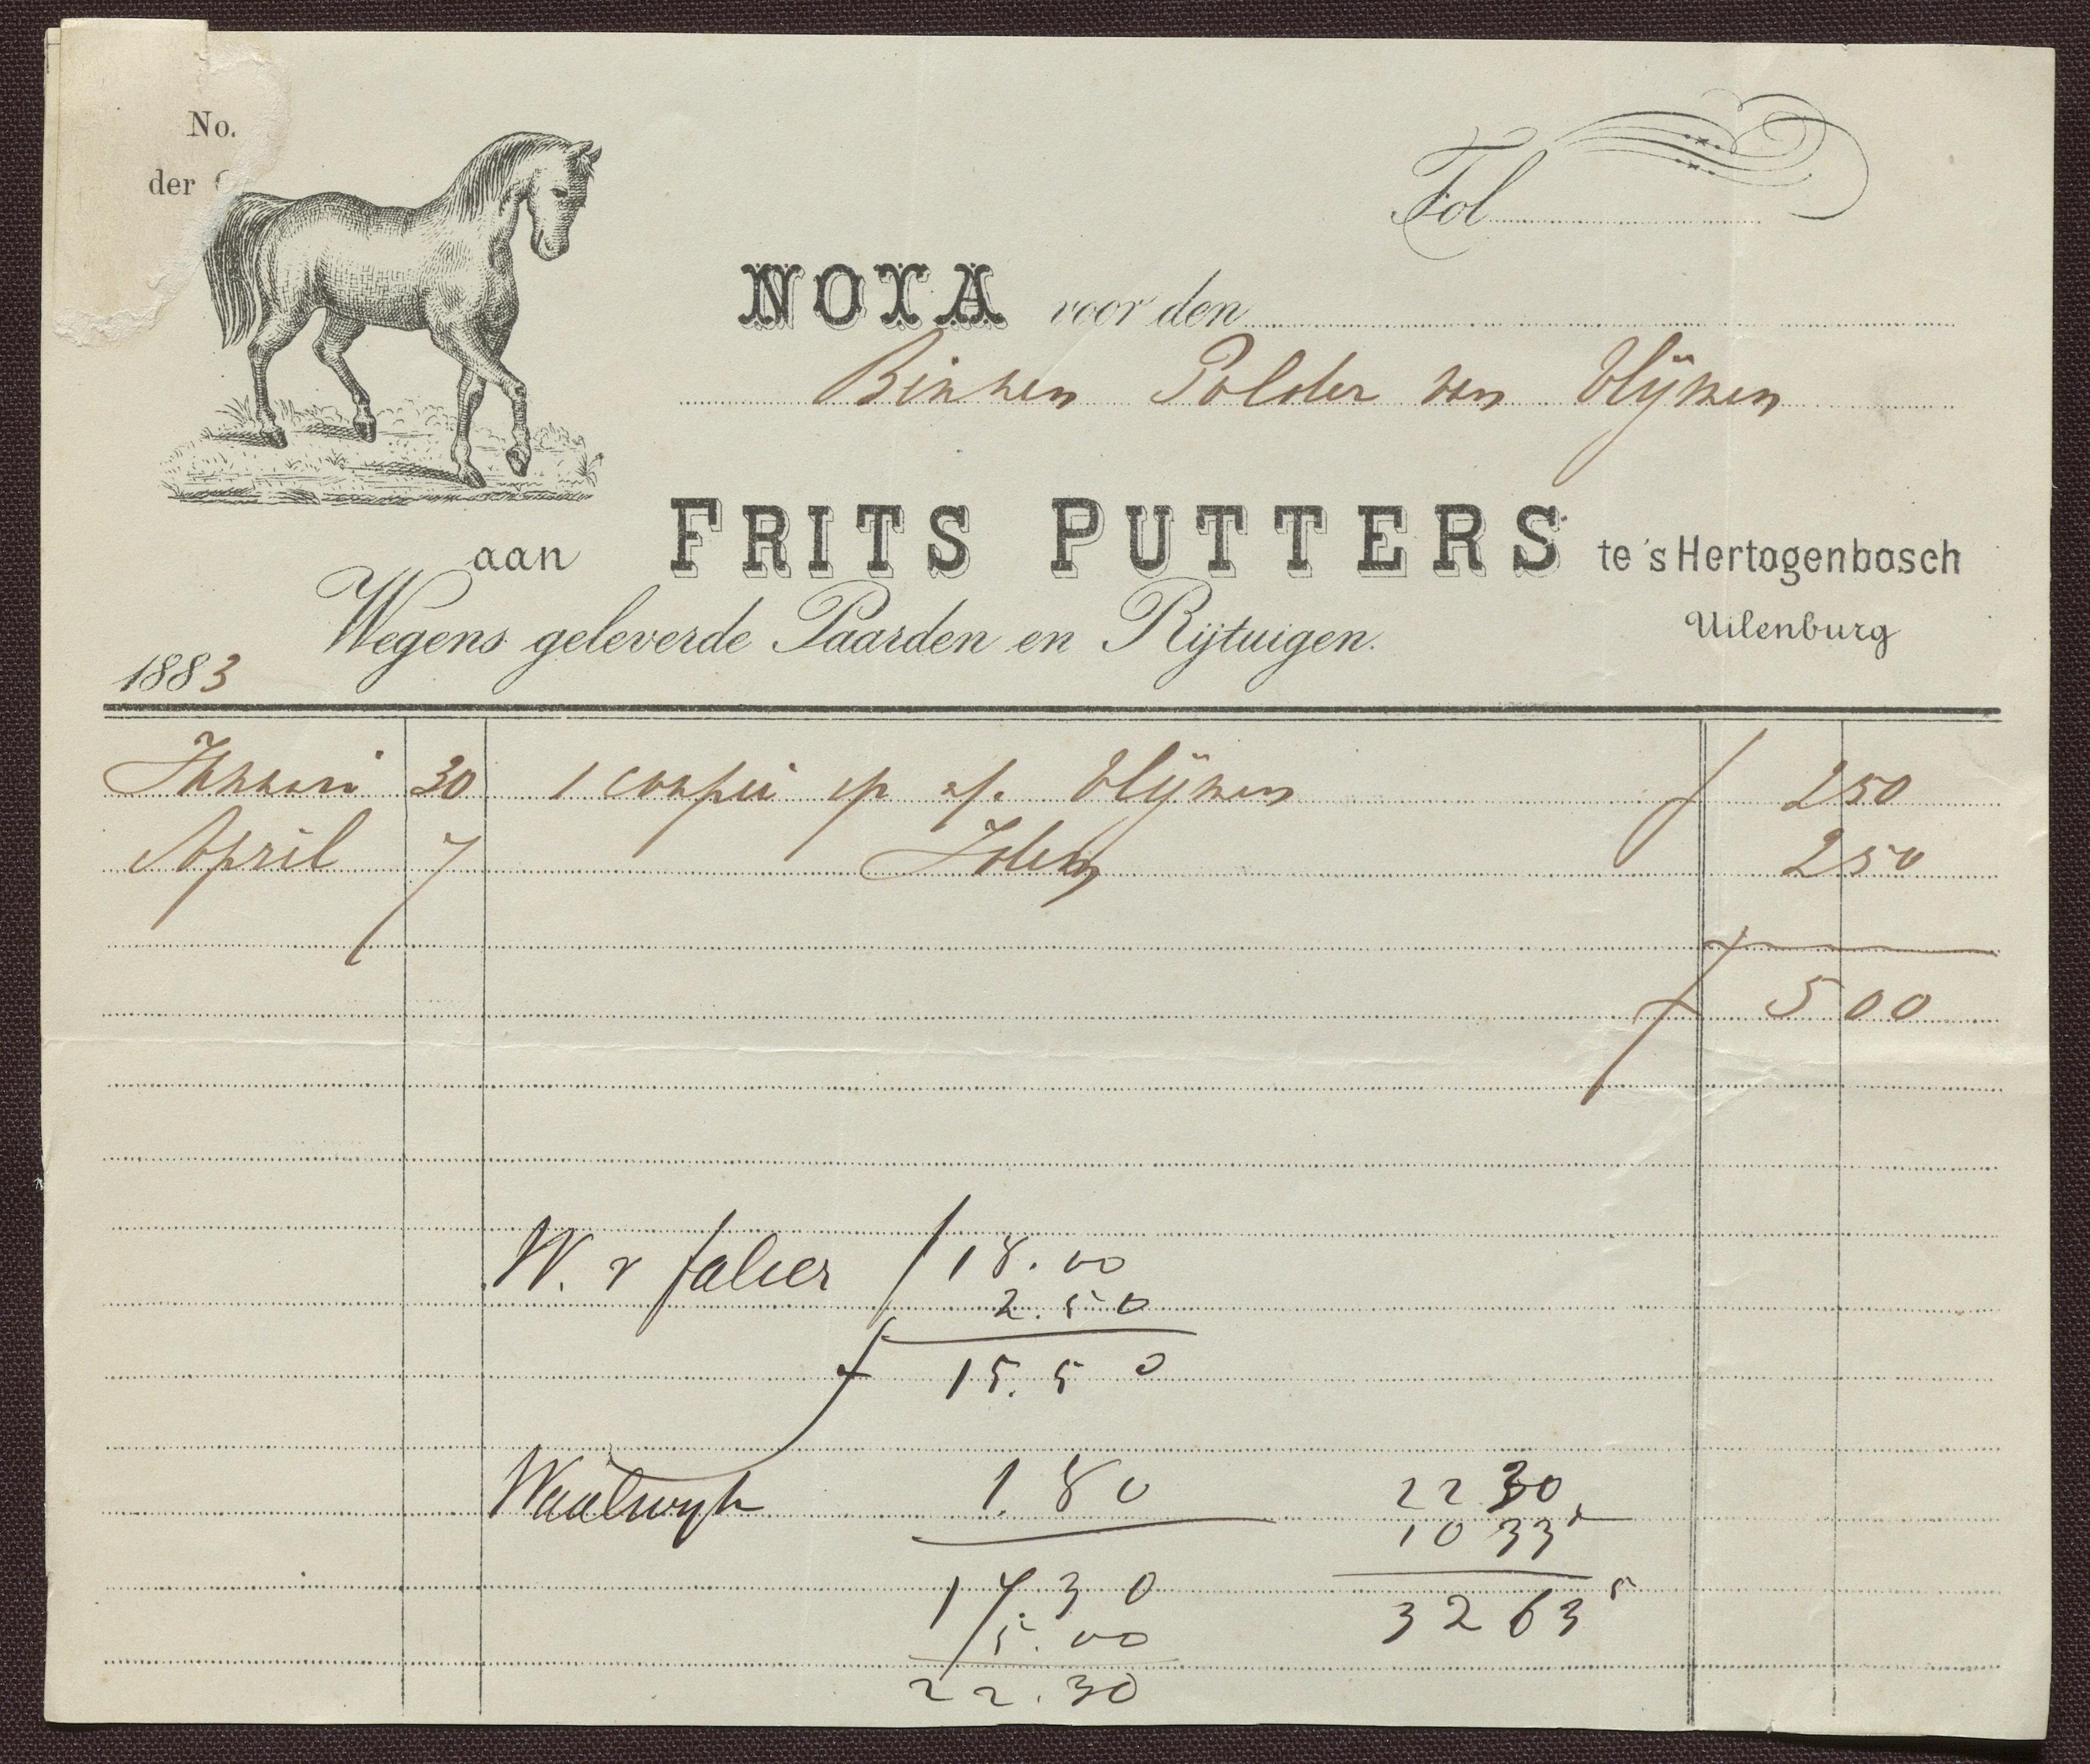 No.
der
Fol
NOTA voor den
Binnen Polder van Vlijmen
aan FRITS PUTTERS te 's Hertogenbosch
Uilenburg
Wegens geleverde Paarden en Rijtuigen.
1883
Januari 30 1 coupéi op af. Vlijmen f 2 50
April 7 Idem 2 50
f 5 00
W. v falier f 18.00
2.50
f 15.50
Waalwyk 1.80 22 30
10 33⁵
17.30 32 63⁵
5.00
22.30